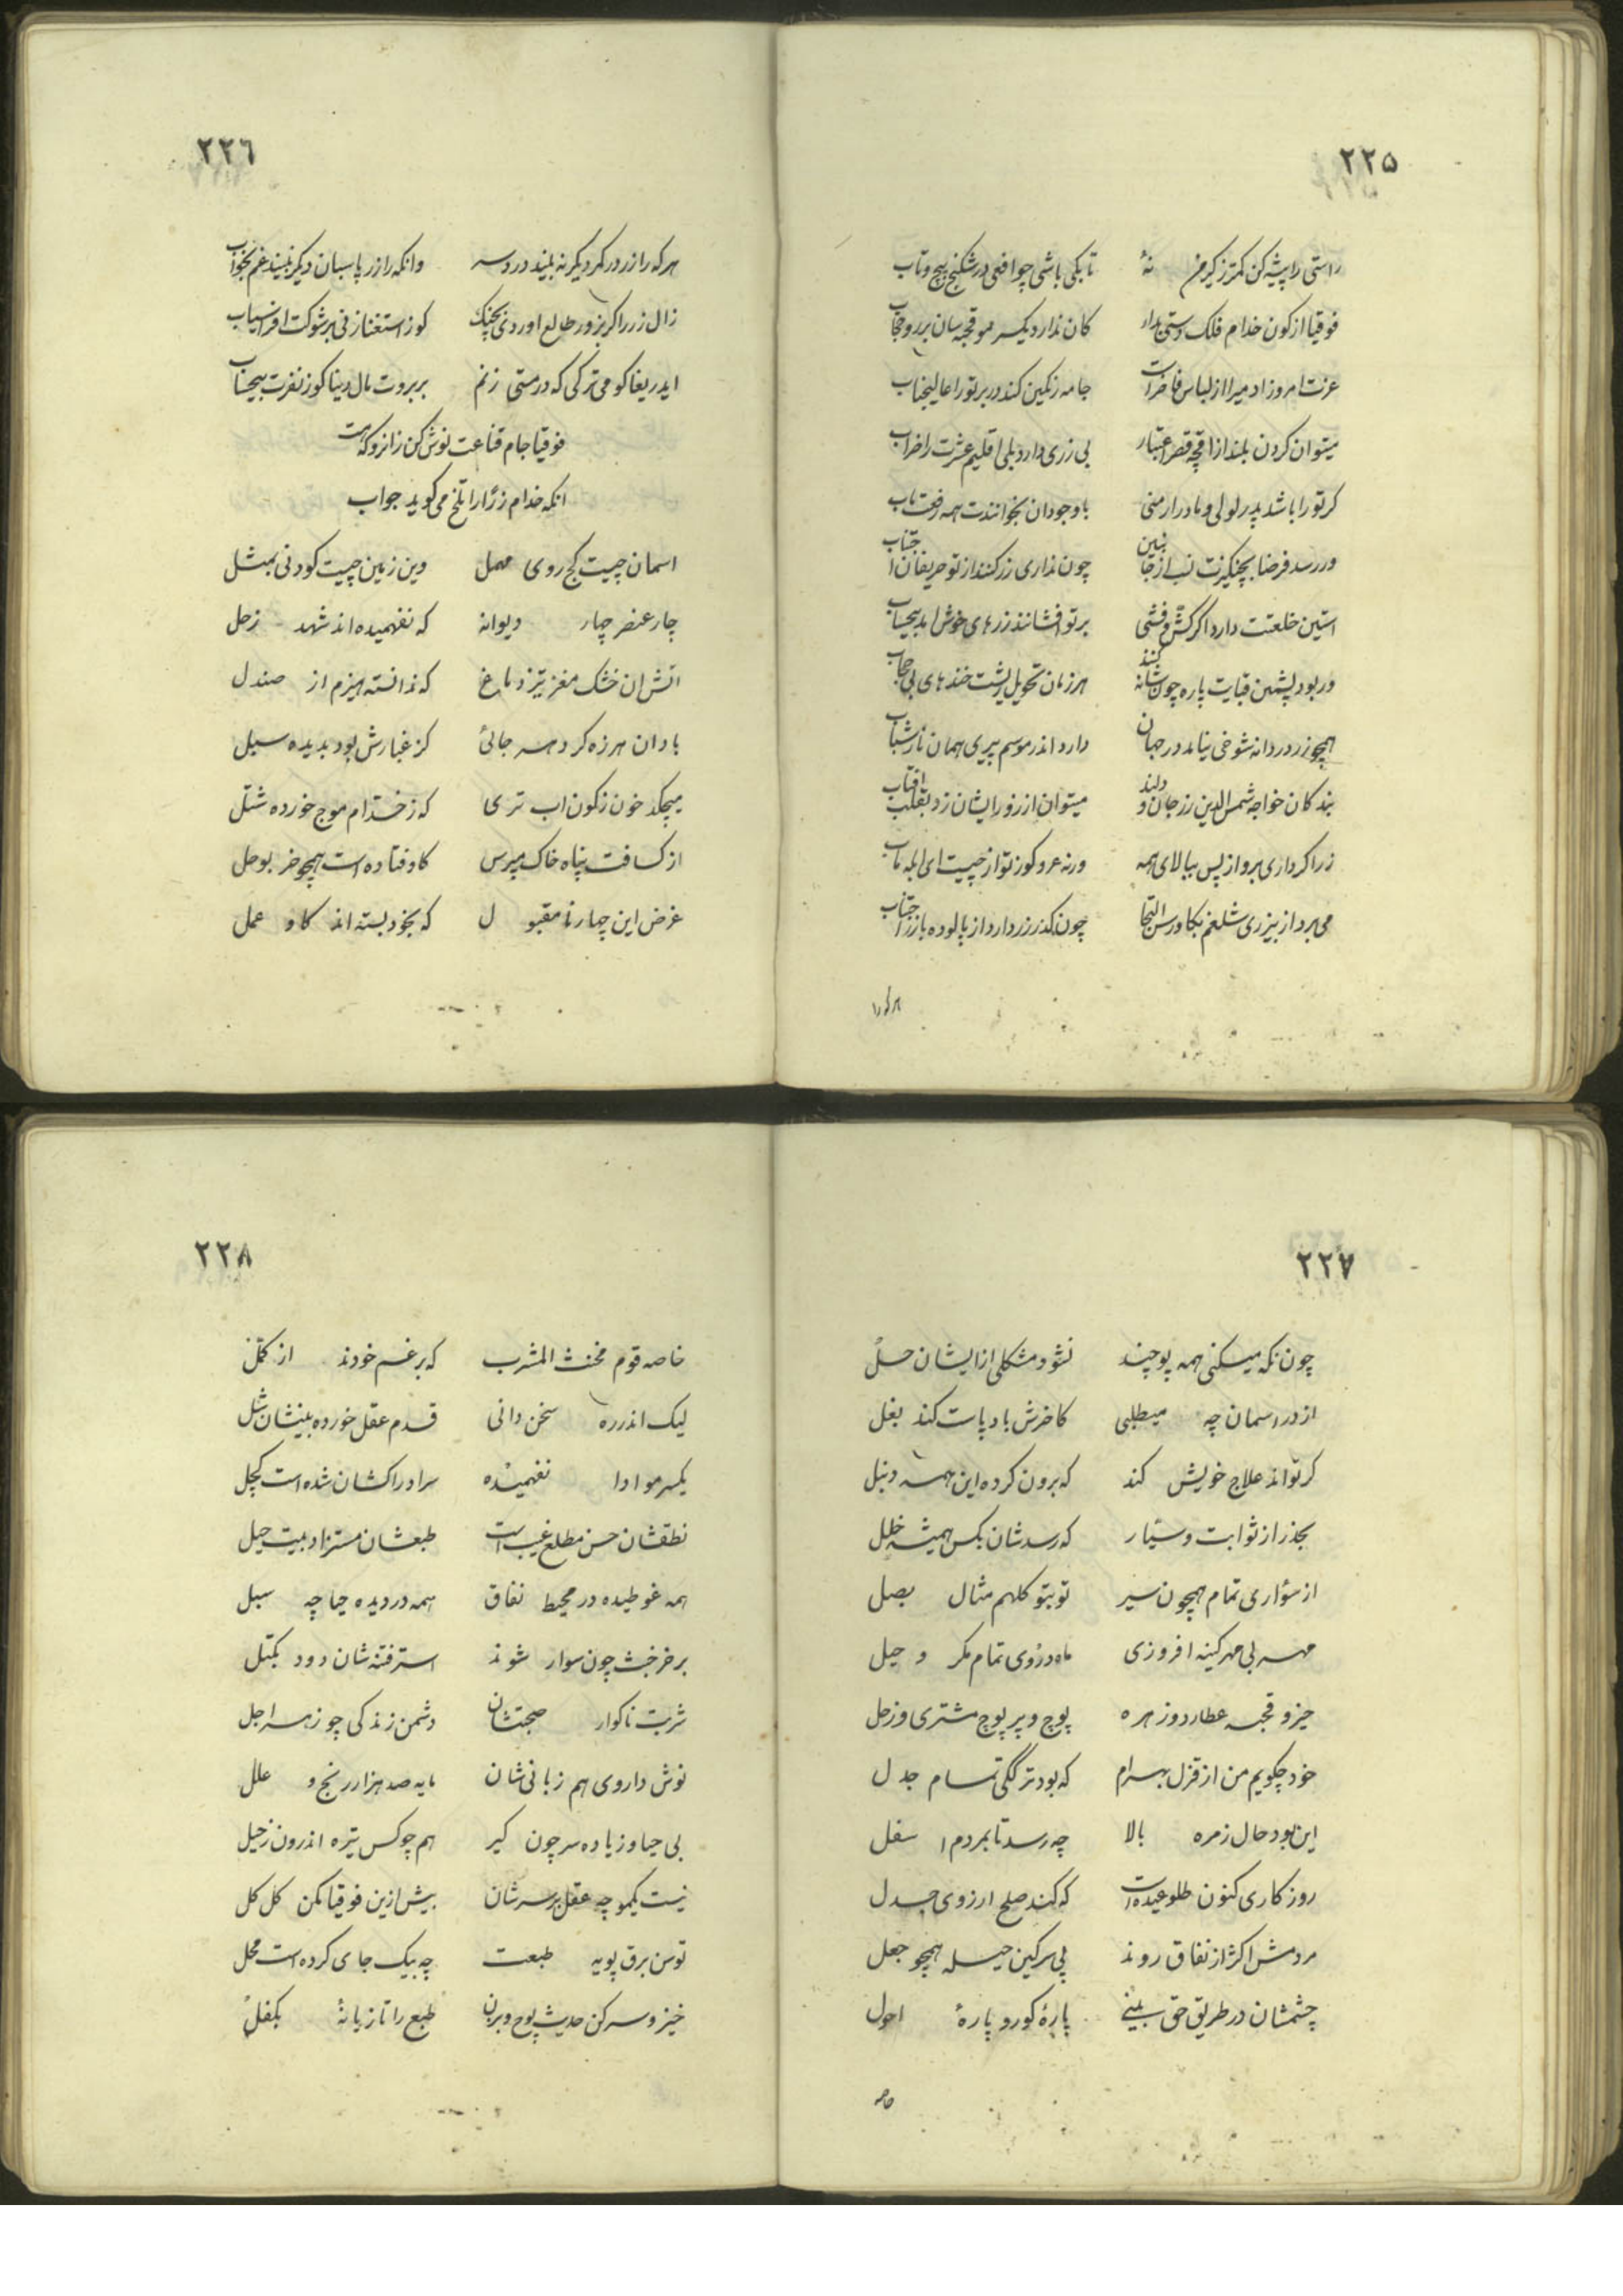 ٢٢۵
راستی را پیشه کن کمتر ز کیر من نهٔ تا بکی باشی چو افعی در شکنج پیچ و تاب
فوقیا از کون خدام فلک دستی مدار کان ندارد یکسر مو قحبه سان بر رو حجاب
عزت امروز ادمیرا از لباس فاخر است جامه رنکین کند در بر تو را عالیجناب
میتوان کردن بلند از اقچه قصر اعتبار بی زری دارد بلی اقلیم عشرت را خراب
کر تو را باشد پدر لولی و مادر ارمنی با وجود ان بخوانندت همه رفعت ماب
ور رسد فرضا بچنکیزت نسب از جانبین چون نداری زر کنند از تو حریفان اجتناب
استین خلعتت دارد اکر کش و فشی بر تو افشانند زرهای خوش امد بیحساب
ور بود پشمین قبایت پاره چون شانه کنند هر زمان تحویل ریشت خنده های بی حجاب
همچو زر دردانه شوخی نیامد در جهان دارد اندر موسم پیری همان ناز شباب
بندکان خواجه شمس الدین زر جان و دلند میتوان از زور ایشان زد بقلب افتاب
زر اکر داری برو از پس بیا لای همه ورنه عر و کوز تو از چیست ای ابله ماب
می برد از بیزری شلغم بکاورس التجا چون کذر زر دارد از پالوده بازر اجتناب
هرکرا
٢٢٦
هر که را زر در کمر دیکر نه بیند درد سر وانکه را زر پاسبان دیکر نبیند غم بخواب
زال زر را کر بزور طالع اوردی بچنک کوز استغنا زنی بر شوکت افراسیاب
ایدریغا کو می ترکی که در مستی زنم بر بروت مال دنیا کوز نفرت بیحساب
فوقیا جام قناعت نوش کن زانرو که هست
انکه خدام زر ژا را تلخ می کوید جواب
اسمان چیست کج روی مهمل وین زمین چیست کودنی بمثل
چار عنصر چهار دیوانه که نفهمیده اند شهد ز حل
اتش ان خشک مغز تیز دماغ که ندانسته هیزم از صندل
باد ان هرزه کرد هر جائی کز غبارش بود بدیده سبل
میچکد خون ز کون اب تری که ز خدام موج خورده شتل
از کسافت پناه خاک مپرس کاوفتاده است همچو خر بوحل
غرض این چهار نامقبول که بخود بسته اند کاو عمل
٢٢٧
چون نکه میکنی همه پوچند نشود مشکلی از ایشان حل
از در اسمان چه میطلبی کاخرش باد پات کند بغل
کر تواند علاج خویش کند که برون کرده این همه دنبل
بکذر از ثوابت و سیار که رسدشان بکس همیشه خلل
از سؤاری تمام همچون سیر تو بتو کلهم مثال بصل
مهر بی مهر کینه افروزی ماه دزوی تمام مکر و حیل
حیز و قحبه عطارد و زهره پوچ و پر پوچ مشتری و زحل
خود چکویم من از قزل بهرام که بود ترککی تمام جدل
این بود حال زمره بالا چه رسد تا بمردم اسفل
روزکاری کنون طلوعیده است که کند صلح ارزوی جدل
مردمش اکثر از نفاق روند پی سرکین حیله همچو جعل
چشمشان در طریق حق بینی پارهٔ کور و پارهٔ احول
خاصه
٢٢٨
خاصه قوم مخنث المشرب که برغم خودند از کمل
لیک اندر ره سخن دانی قدم عقل خورده بینشان شل
یکسر مو ادا نفهمیده سر ادراکشان شده است کچل
نطقشان حسن مطلع غیب است طبعشان مستزاد بیت حیل
همه غوطیده در محیط نفاق همه در دیده حیا چه سبل
بر خر خبث چون سوار شوند استر فتنه شان دود بکتل
شربت ناکوار صحبتشان دشمن زندکی چو زهر اجل
نوش داروی هم زبانی شان مایه صد هزار رنج و علل
بی حیا و زیاده سر چون کیر هم چو کس تیره اندرون ز حیل
نیست یکمو چه عقل بر سرشان بیش ازین فوقیا مکن کل کل
توسن برق پویه طبعت چه بیک جای کرده است محل
خیز و سر کن حدیث پوچ و بزن طبع را تازیانهٔ بکفل